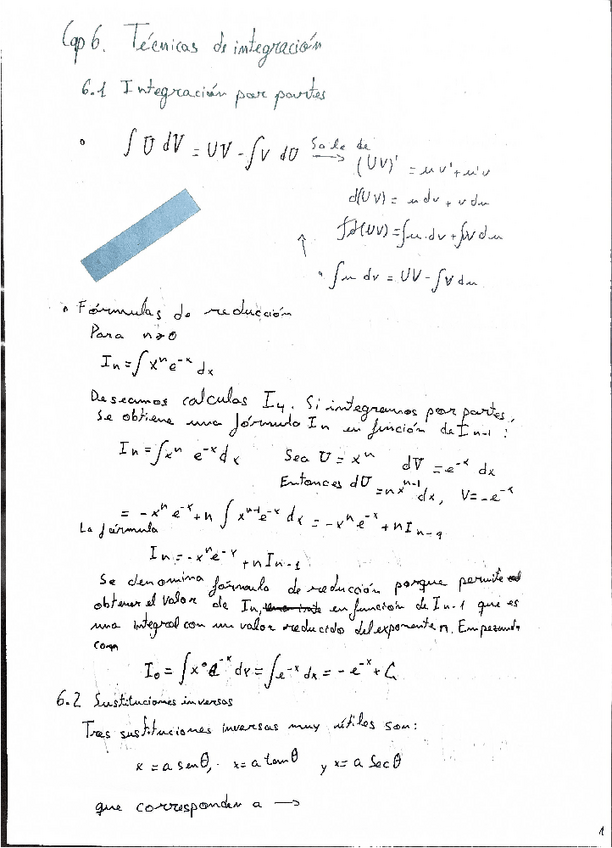 Cap 6. Técnicas de integración
6.1 Integración por partes
∫ U dV = UV - ∫ V dU Sale de → (UV)' = uv' + u'v
d(UV) = u dv + v du
∫ d(UV) = ∫u·dv + ∫V du
↑ • ∫ u dv = UV - ∫ V du
• Fórmulas de reducción
Para n>0
In = ∫ xⁿ e⁻ˣ dx
Deseamos calculas I₄. Si integramos por partes,
Se obtiene una fórmula In en función de In-1:
In = ∫xⁿ e⁻ˣ dx Sea U = xⁿ dV = e⁻ˣ dx
Entonces dU = nxⁿ⁻¹ dx, V = -e⁻ˣ
= -xⁿ e⁻ˣ + n ∫ xⁿ⁻¹ e⁻ˣ dx = -xⁿ e⁻ˣ + n In-1
La fórmula
In = -xⁿ e⁻ˣ + n In-1
Se denomina fórmula de reducción porque permite
obtener el valor de In, en función de In-1 que es
una integral con un valor reducido del exponente n. Empezando
con
I₀ = ∫ x⁰ e⁻ˣ dx = ∫ e⁻ˣ dx = -e⁻ˣ + C
6.2 Sustituciones inversas
Tres sustituciones inversas muy útiles son:
x = a senθ, x = a tanθ y x = a Secθ
que corresponden a →
1